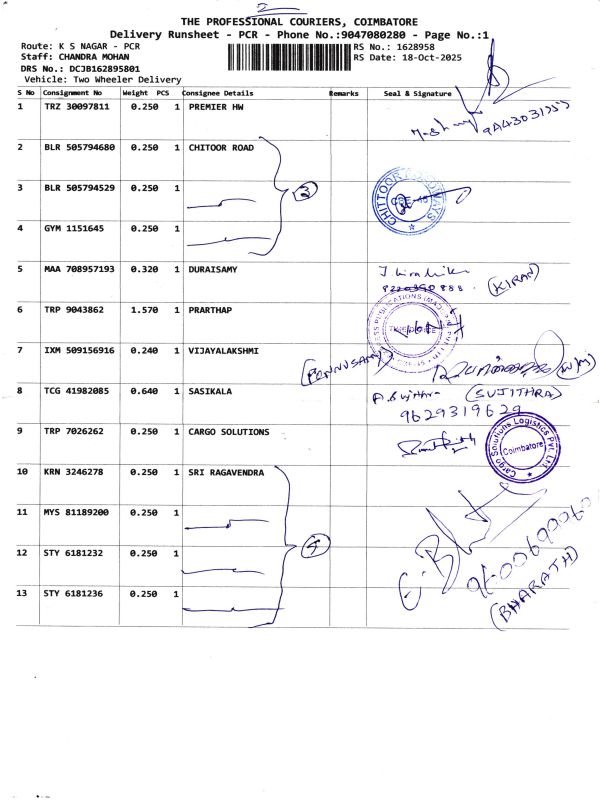 2
THE PROFESSIONAL COURIERS, COIMBATORE
Delivery Runsheet - PCR - Phone No.:9047080280 - Page No.:1
Route: K S NAGAR - PCR
RS No.: 1628958
Staff: CHANDRA MOHAN
RS Date: 18-Oct-2025
DRS No.: DCJB162895801
Vehicle: Two Wheeler Delivery
S No Consignment No Weight PCS Consignee Details Remarks Seal & Signature
1 TRZ 30097811 0.250 1 PREMIER HW
2 BLR 505794680 0.250 1 CHITOOR ROAD
3 BLR 505794529 0.250 1
3
CHITTOOR ROADWAYS
4 GYM 1151645 0.250 1
5 MAA 708957193 0.320 1 DURAISAMY
(KIRAN)
6 TRP 9043862 1.570 1 PRARTHAP
7 IXM 509156916 0.240 1 VIJAYALAKSHMI
(PONNUSAMY)
8 TCG 41982085 0.640 1 SASIKALA
(SUJITHRA)
9629319629
9 TRP 7026262 0.250 1 CARGO SOLUTIONS
Cargo Solutions Logistics Pvt. Ltd.
Coimbatore
10 KRN 3246278 0.250 1 SRI RAGAVENDRA
11 MYS 81189200 0.250 1
12 STY 6181232 0.250 1
9600690060
(BHARATH)
13 STY 6181236 0.250 1